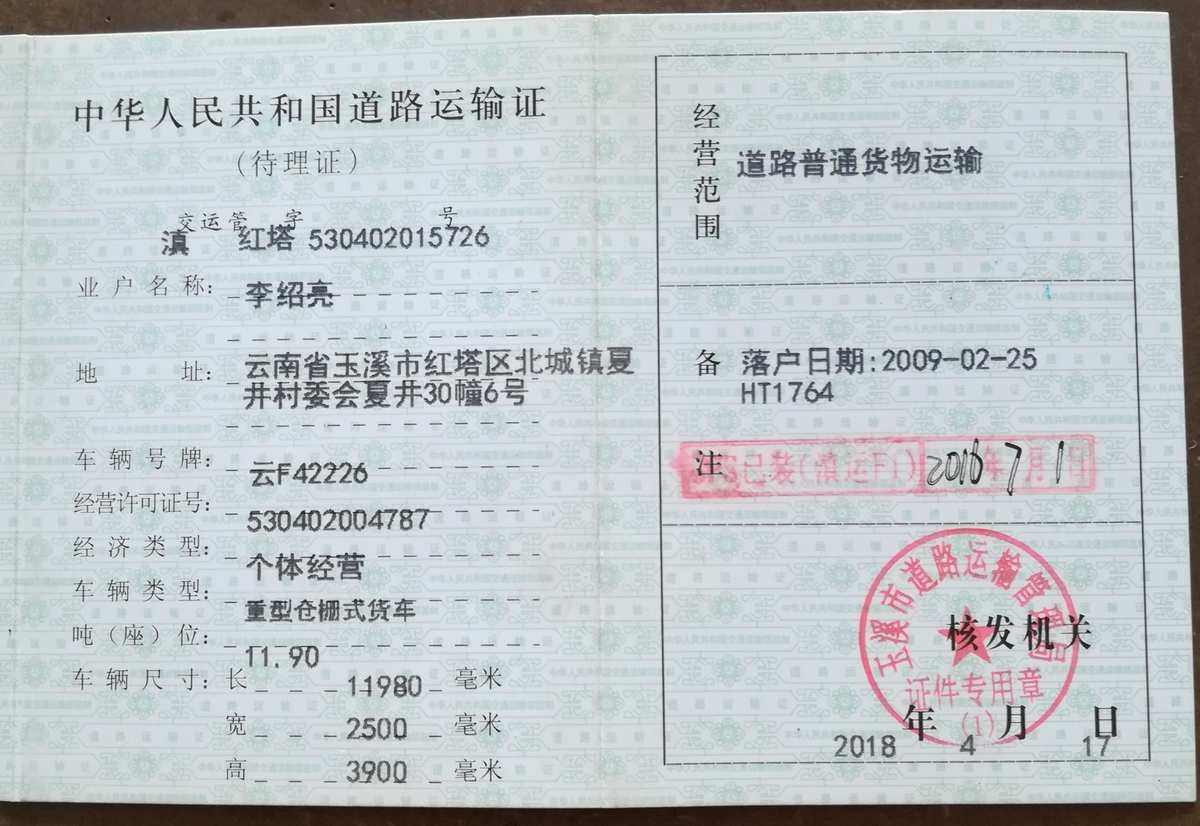 中华人民共和国道路运输证
(待理证)
交运管 字 号
滇 红塔 530402015726
业户名称: 李绍亮
地 址: 云南省玉溪市红塔区北城镇夏
井村委会夏井30幢6号
车辆号牌: 云F42226
经营许可证号: 530402004787
经济类型: 个体经营
车辆类型: 重型仓栅式货车
吨(座)位: 11.90
车辆尺寸: 长 11980 毫米
宽 2500 毫米
高 3900 毫米
经营范围
道路普通货物运输
备注
落户日期:2009-02-25
HT1764
已装(滇运F1) 年7月1日
玉溪市道路运输管理局
核发机关
证件专用章
(1)
年 月 日
2018 4 17